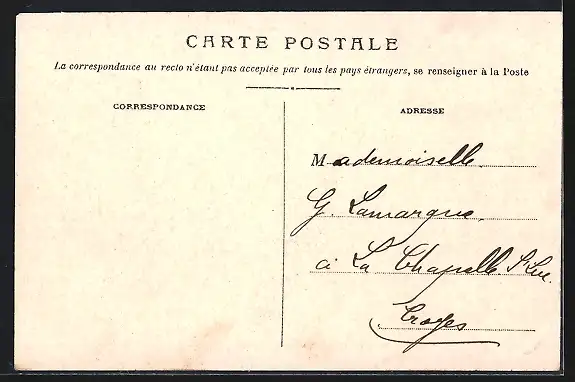 CARTE POSTALE
La correspondance au recto n'étant pas acceptée par tous les pays étrangers, se renseigner à la Poste
CORRESPONDANCE
ADRESSE
Mademoiselle
G. Lamargue,
à La Chapelle St Luc.
Troyes